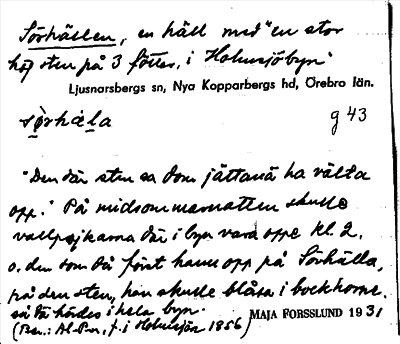 Sörhällen, en häll med "en stor
hög sten på 3 fötter, i Holmsjöbyn"
Ljusnarsbergs sn, Nya Kopparbergs hd, Örebro län.
sörhäla g 43
"Den där sten sa dom jättanä ha välta
opp." På midsommarnatten skulle
vallpojkarna där i byn vara oppe kl. 2.
o. den som då först hann opp på Sörhälla,
på den sten, han skulle blåsa i bockhorne.
så dä hördes i hela byn.
MAJA FORSSLUND 1931
(Ber.: Al. Pn, f. i Holmsjön 1856)